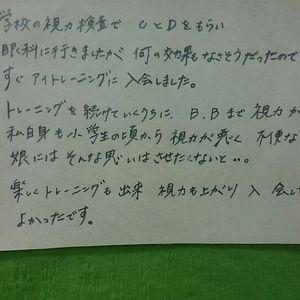 学校の視力検査で CとDをもらい
眼科に行きましたが 何の効果もなさそうだったので
すぐ アイトレーニングに 入会しました。
トレーニングを続けていくうちに、B.Bまで視力が
私自身も小学生の頃から 視力が悪く 不便な
娘には そんな思いはさせたくないと…。
楽しくトレーニングも出来 視力も上がり 入会して
よかったです。